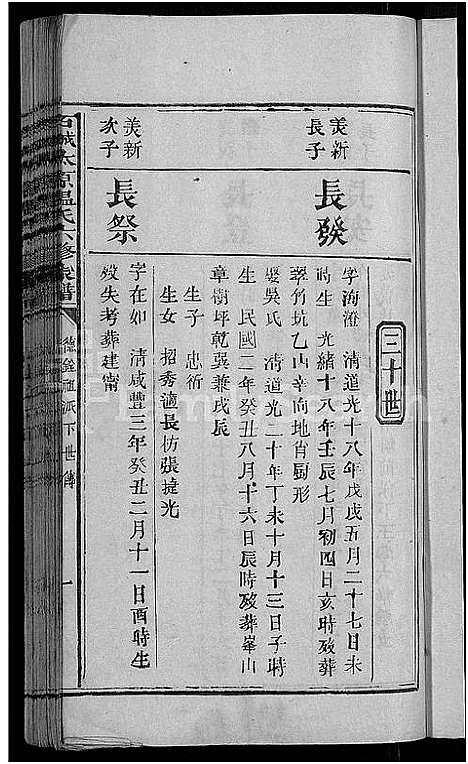 三十世
美新
長子
長發
字海澄 清道光十八年戊戌五月二十七日未
時生 光緒十八年壬辰七月初四日亥時歿葬
翠竹坑乙山辛向地肖厨形
娶吳氏 清道光二十年丁未十月十三日子時
生 民國二年癸丑八月十六日辰時歿葬峯山
章樹坪乾巽兼戌辰
生子 忠衍
生女 招秀適長枋張掟光
美新
次子
長祭
字在如 清咸豐三年癸丑二月十一日酉時生
歿失考葬建甯
石城太原温氏六修族譜
德金祖派下世傳
一